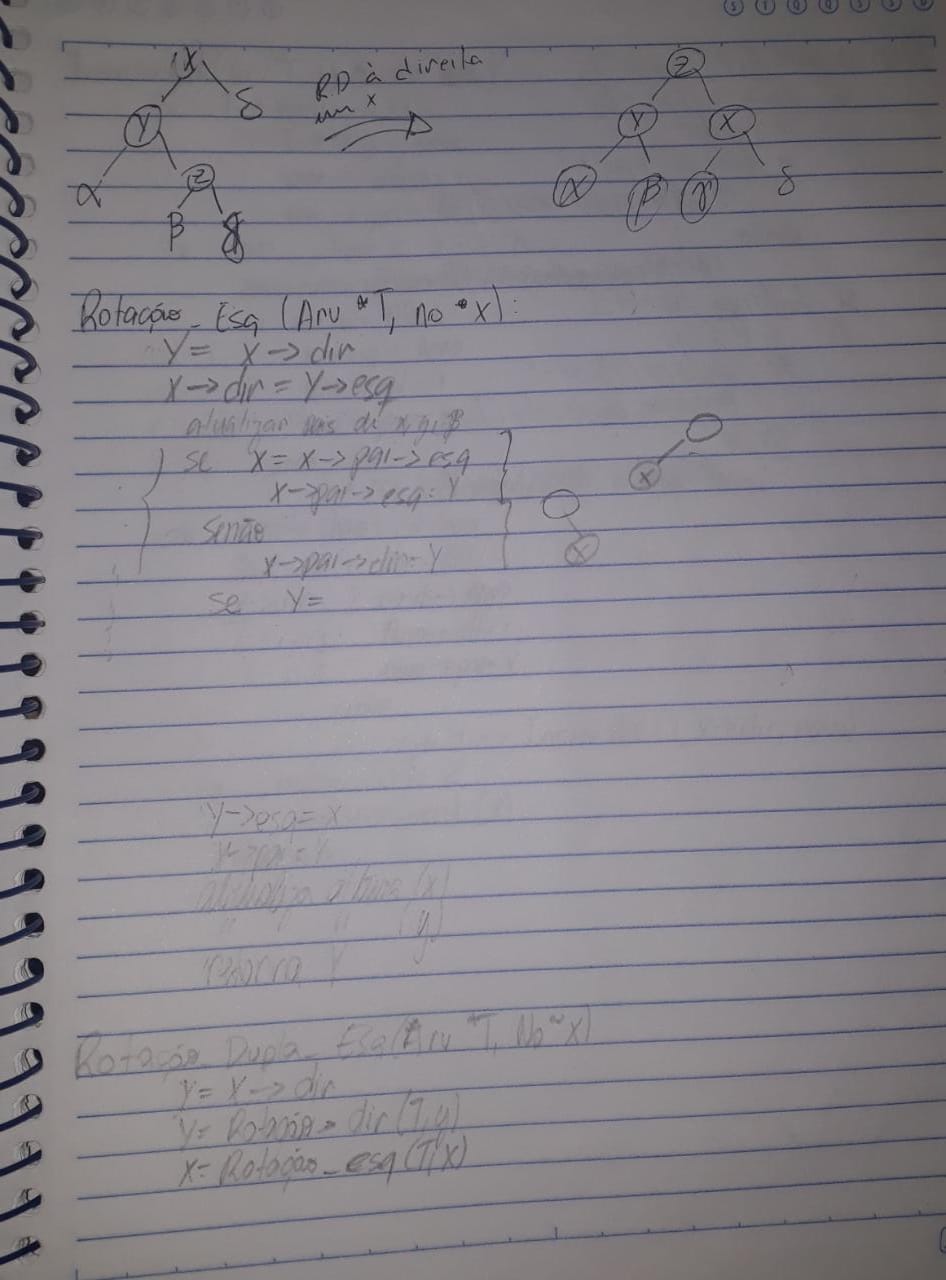 X
δ
Y
α
Z
β
RD à direita
em x
Z
Y X
α β γ δ
Rotação_Esq (Arv *T, no *X):
Y = X → dir
X → dir = Y → esq
atualizar pais de x, y, β
se X = X → pai → esq
X → pai → esq = Y
senão
X → pai → dir = Y
se Y =
X
X
Y → esq = X
X → pai = Y
atualiza altura (x)
" " (y)
retorna Y
Rotação_Dupla_Esq (Arv *T, No *X)
Y = X → dir
Y = Rotação_dir (T, y)
X = Rotação_esq (T, X)